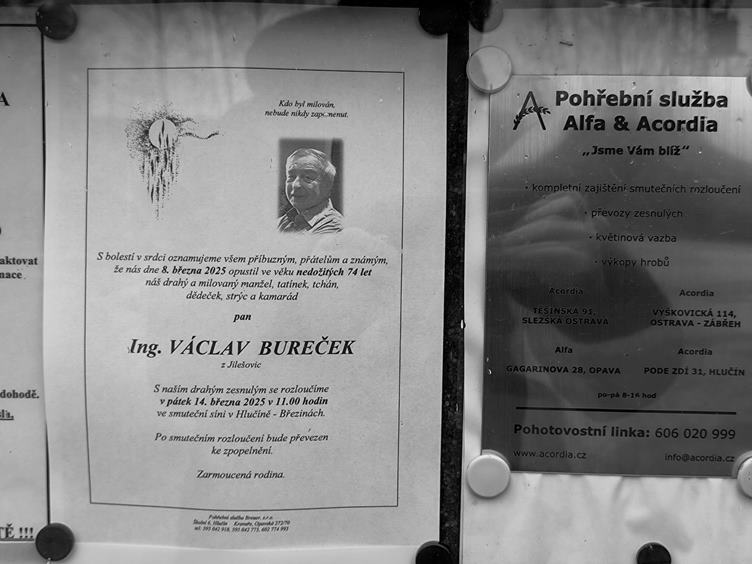 A
)
aktovat
nace.
dohodě.
TĚ !!!
Kdo byl milován,
nebude nikdy zapomenut.
S bolestí v srdci oznamujeme všem příbuzným, přátelům a známým,
že nás dne 8. března 2025 opustil ve věku nedožitých 74 let
náš drahý a milovaný manžel, tatínek, tchán,
dědeček, strýc a kamarád
pan
Ing. VÁCLAV BUREČEK
z Jilešovic
S naším drahým zesnulým se rozloučíme
v pátek 14. března 2025 v 11.00 hodin
ve smuteční síni v Hlučíně - Březinách.
Po smutečním rozloučení bude převezen
ke zpopelnění.
Zarmoucená rodina.
Pohřební služba Breuer, s.r.o.
Školní 6, Hlučín Kravaře, Opavská 272/70
tel. 595 042 918, 595 042 775, 602 774 993
Pohřební služba
Alfa & Acordia
„Jsme Vám blíž"
• kompletní zajištění smutečních rozloučení
• převozy zesnulých
• květinová vazba
• výkopy hrobů
Acordia
TĚŠÍNSKÁ 91,
SLEZSKÁ OSTRAVA
Acordia
VÝŠKOVICKÁ 114,
OSTRAVA - ZÁBŘEH
Alfa
GAGARINOVA 28, OPAVA
Acordia
PODE ZDÍ 31, HLUČÍN
po-pá 8-16 hod
Pohotovostní linka: 606 020 999
www.acordia.cz
info@acordia.cz